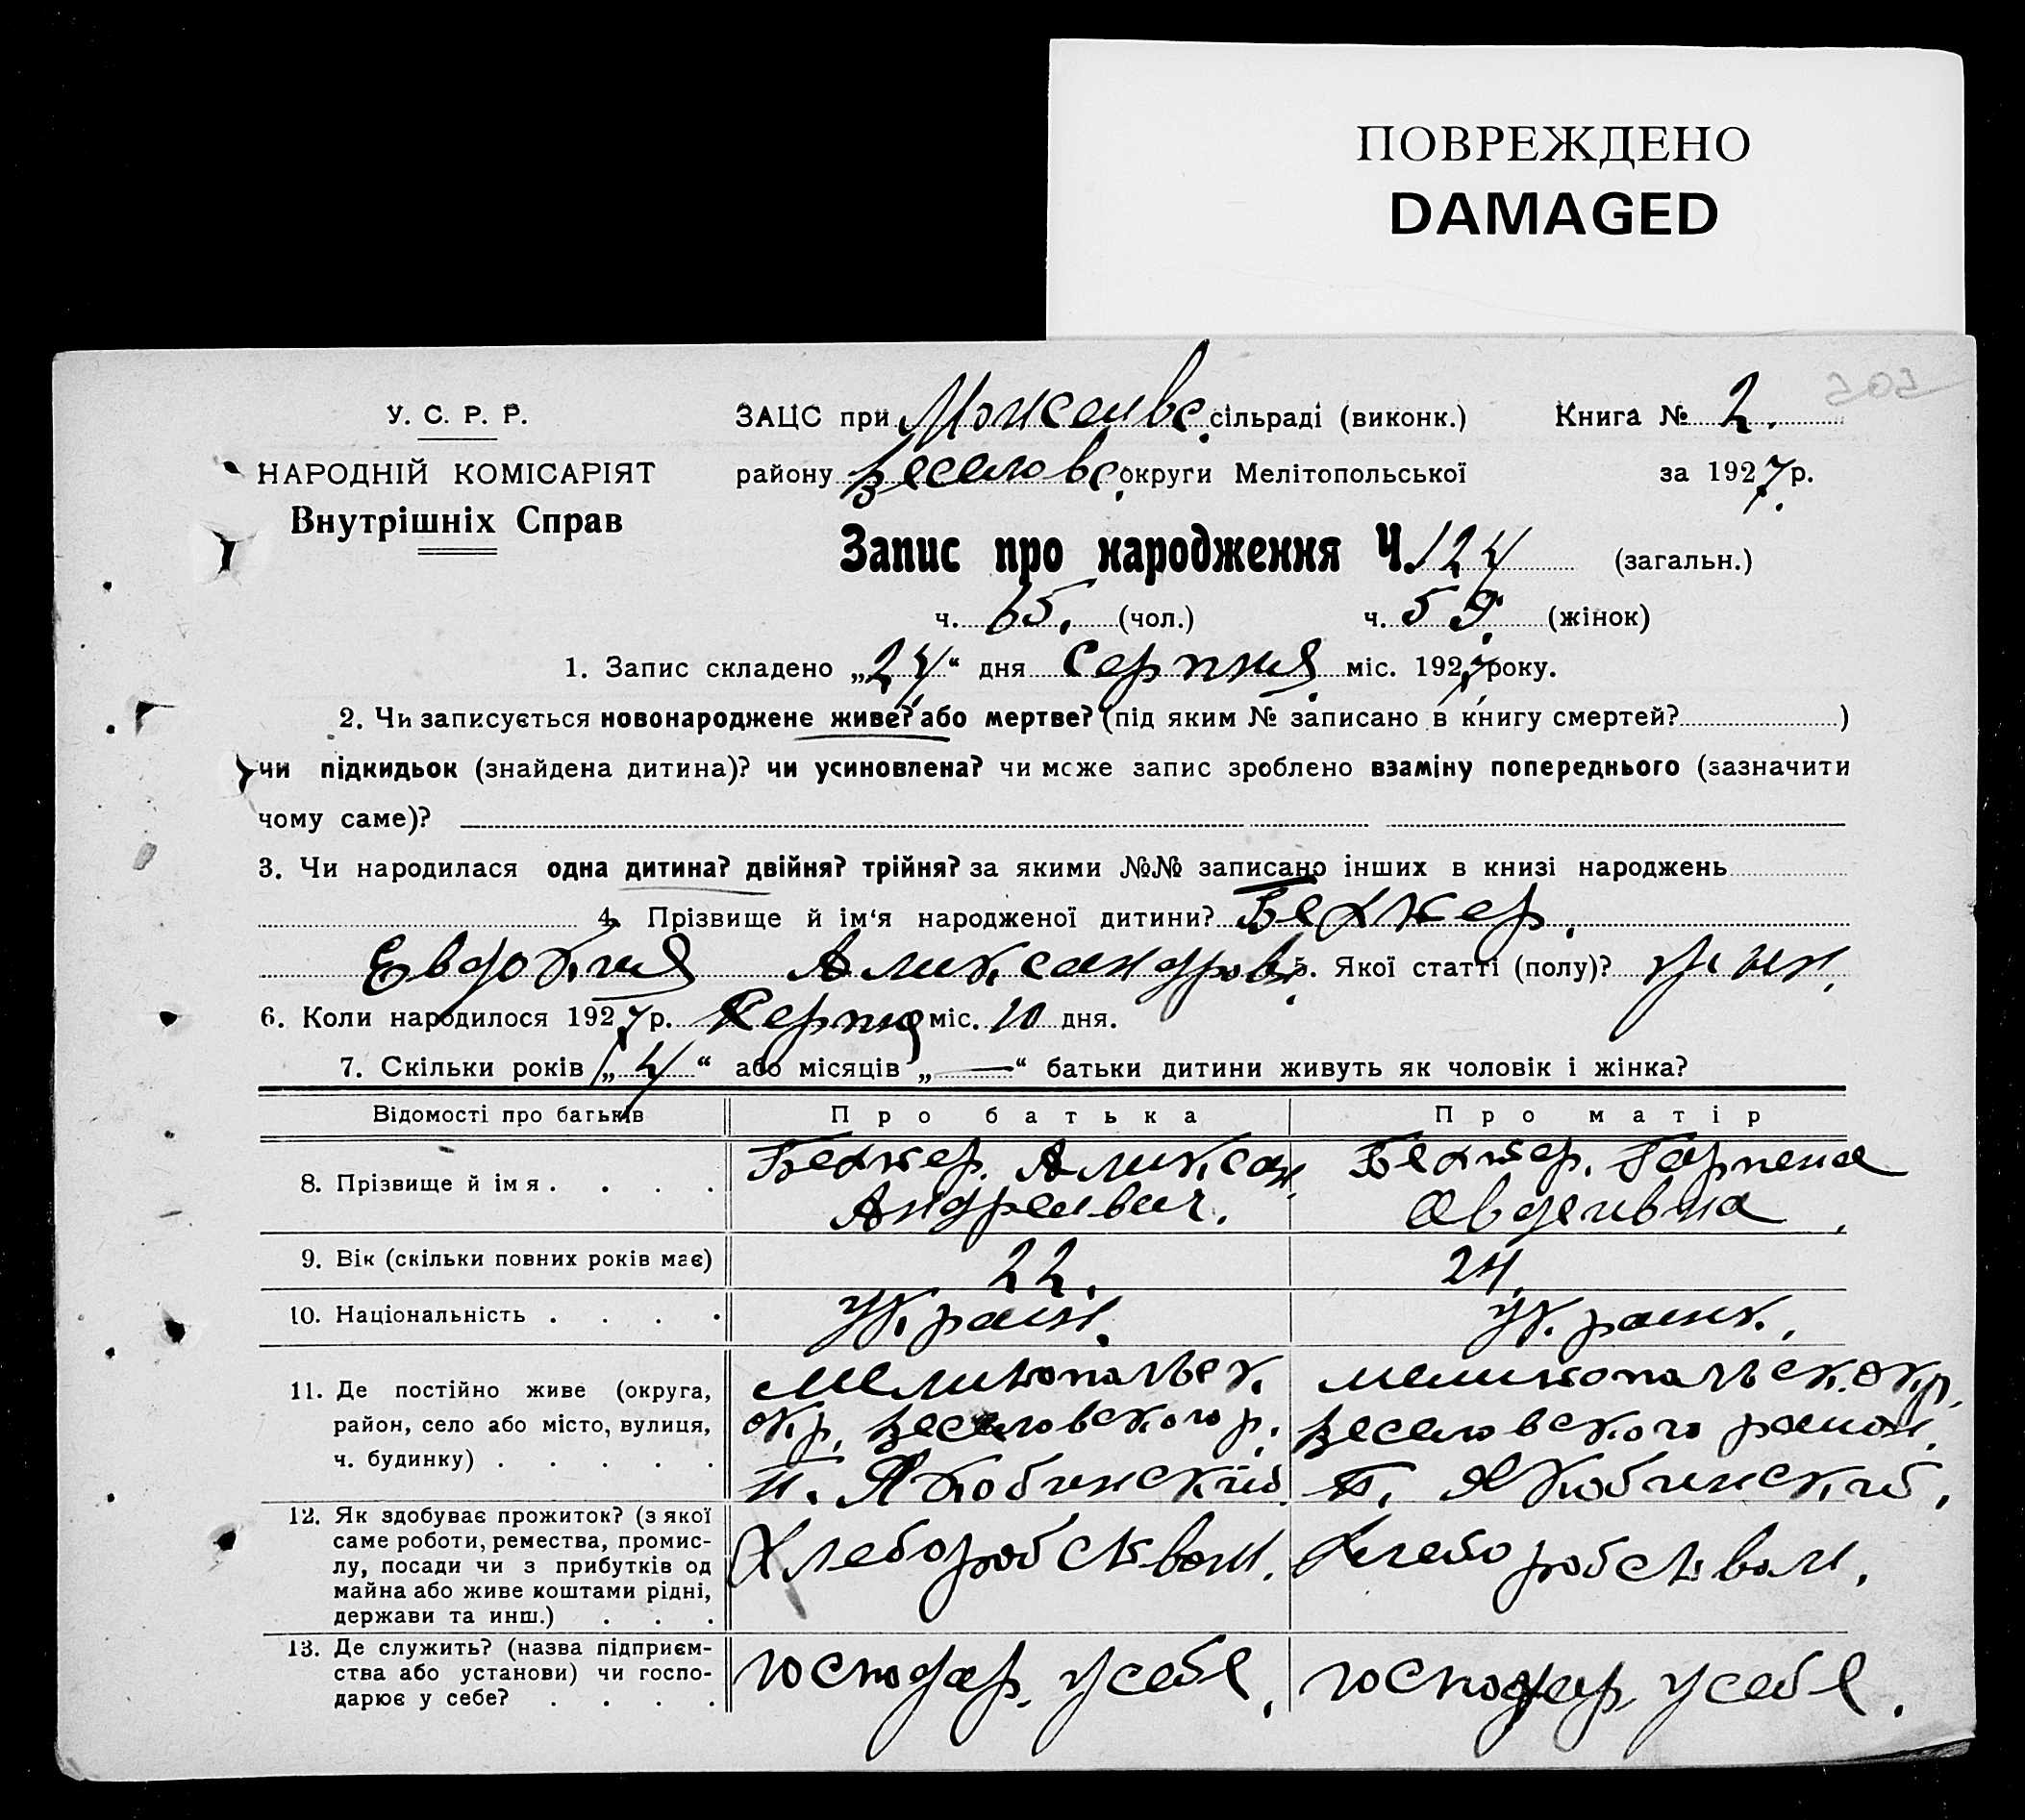 ПОВРЕЖДЕНО
DAMAGED
У. С. Р. Р.
НАРОДНІЙ КОМІСАРІЯТ
Внутрішніх Справ
ЗАЦС при сільраді (виконк.) Книга № 2.
району Веселовс. округи Мелітопольської за 1927 р.
Запис про народження Ч. 124 (загальн.)
ч. 65. (чол.) ч. 59. (жінок)
1. Запис складено „24“ дня Серпня міс. 1927 року.
2. Чи записується новонароджене живе? або мертве? (під яким № записано в книгу смертей? )
чи підкидьок (знайдена дитина)? чи усиновлена? чи може запис зроблено взаміну попереднього (зазначити
чому саме)?
3. Чи народилася одна дитина? двійня? трійня? за якими №№ записано інших в книзі народжень
4. Прізвище й ім‘я народженої дитини?
Евдокия Александров. 5. Якої статті (полу)? жин.
6. Коли народилося 1927 р. Серпня міс. 10 дня.
7. Скільки років „4“ або місяців „—“ батьки дитини живуть як чоловік і жінка?
Відомості про батьків Про батька Про матір
8. Прізвище й імя . . . . Алексан. Андреивич. Гарпена Авдеивна.
9. Вік (скільки повних років має) 22. 24.
10. Національність . . . . Украин. Украинк.
11. Де постійно живе (округа, Мелитопальск. Мелитопальск. окр.
район, село або місто, вулиця, окр. Веселовского р. Веселовского район.
ч. будинку) . . . . . п. Якобинский. п. Якобинский.
12. Як здобуває прожиток? (з якої
саме роботи, ремества, промис-
лу, посади чи з прибутків од Хлеборобством. Хлеборобством.
майна або живе коштами рідні,
держави та инш.) . . .
13. Де служить? (назва підприєм-
ства або установи) чи госпо- господар. у себе. господар у себе.
дарює у себе? . . . .